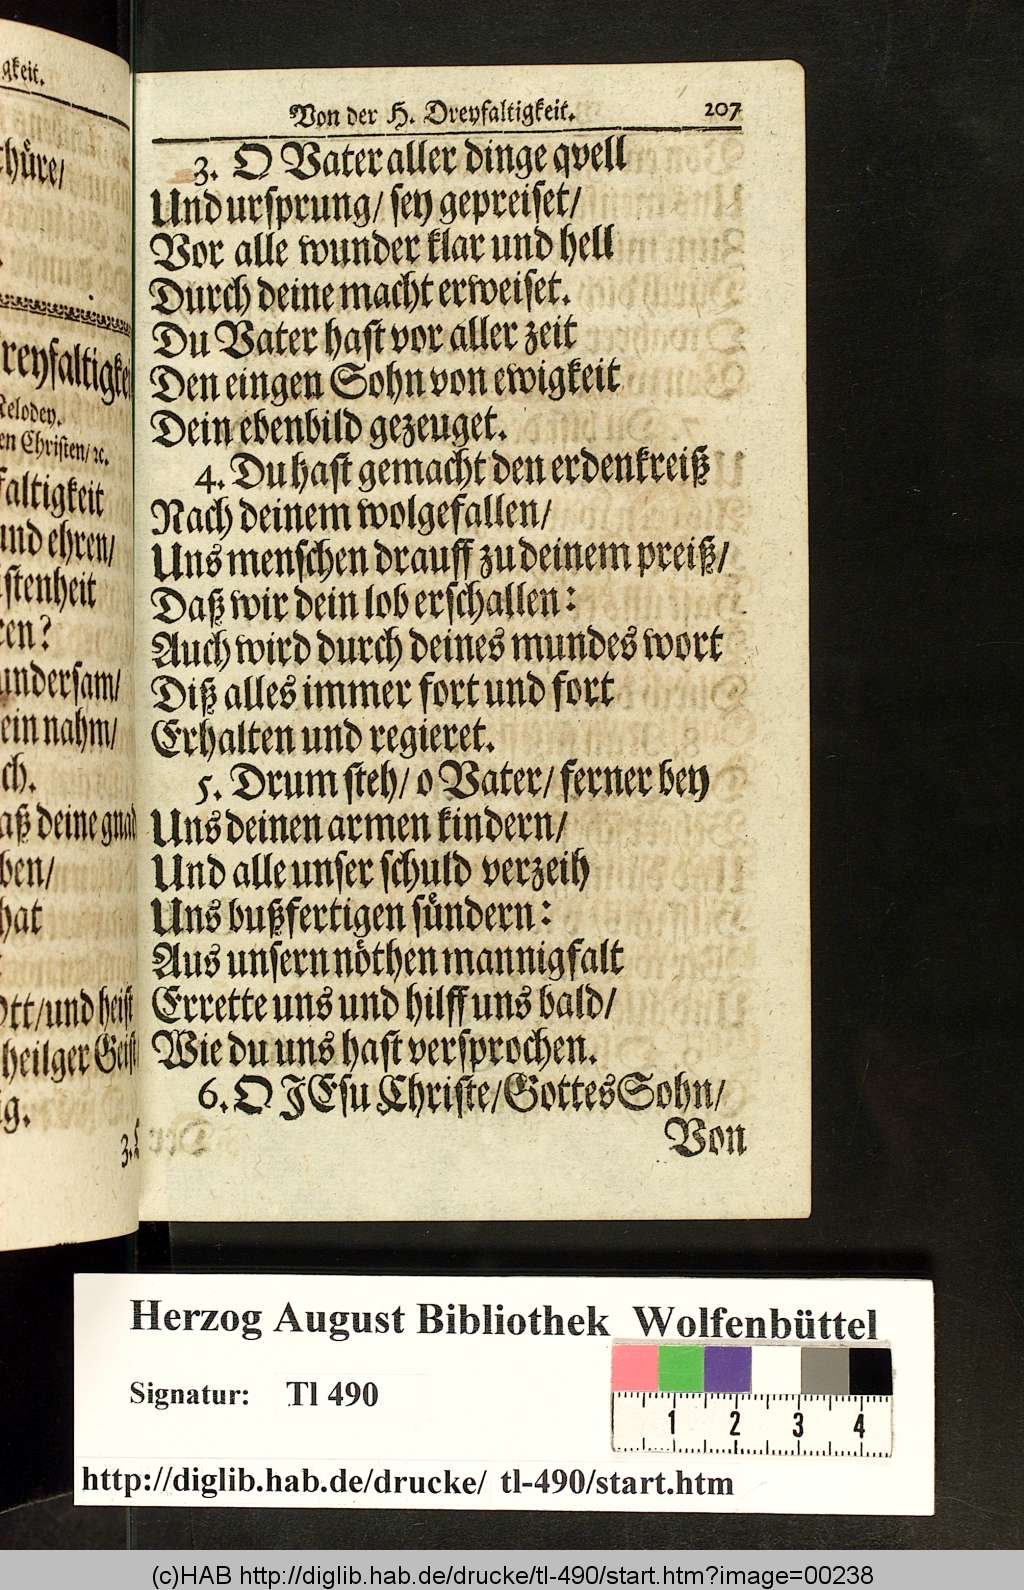 gkeit.
thüre/
reyfaltigkei
Melodey.
en Christen/ꝛc.
faltigkeit
und ehren/
istenheit
ren?
undersam/
ein nahm/
ch.
aß deine gnad
ben/
hat
Ott/und heist
heilger Geist
ig.
3.
Von der H. Dreyfaltigkeit. 207
3. O Vater aller dinge qvell
Und ursprung/ sey gepreiset/
Vor alle wunder klar und hell
Durch deine macht erweiset.
Du Vater hast vor aller zeit
Den eingen Sohn von ewigkeit
Dein ebenbild gezeuget.
4. Du hast gemacht den erdenkreiß
Nach deinem wolgefallen/
Uns menschen drauff zu deinem preiß/
Daß wir dein lob erschallen:
Auch wird durch deines mundes wort
Diß alles immer fort und fort
Erhalten und regieret.
5. Drum steh/ o Vater/ ferner bey
Uns deinen armen kindern/
Und alle unser schuld verzeih
Uns bußfertigen sündern:
Aus unsern nöthen mannigfalt
Errette uns und hilff uns bald/
Wie du uns hast versprochen.
6. O JEsu Christe/Gottes Sohn/
Von
Herzog August Bibliothek Wolfenbüttel
Signatur: Tl 490
1 2 3 4
http://diglib.hab.de/drucke/ tl-490/start.htm
(c)HAB http://diglib.hab.de/drucke/tl-490/start.htm?image=00238